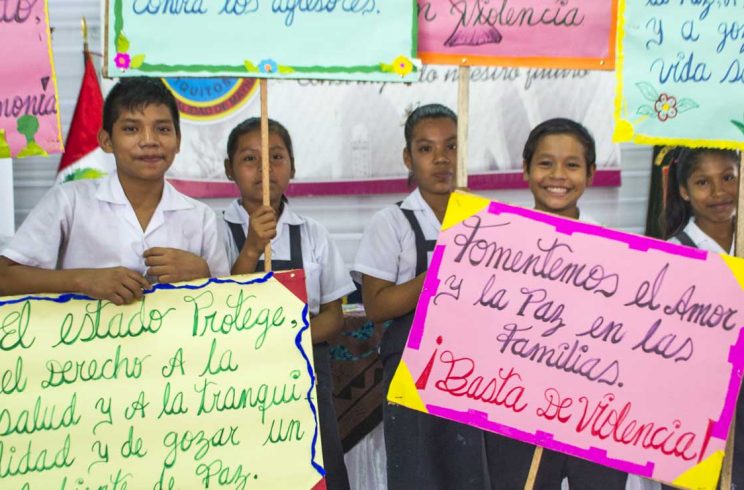 contra los agresores.
n Violencia
QUITO
LIDAD DE MA
nuestro futuro
monta
la Paz, A
y a goz
vida s
El estado Protege,
el Derecho A la
salud y A la tranqui
lidad y de gozar un
ambiente de Paz.
Fomentemos el Amor
y la Paz en las
Familias.
¡Basta de Violencia!